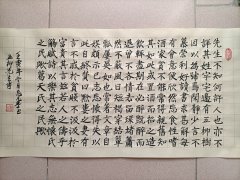 先生不知何許人也亦不
詳其姓字宅邊有五柳樹
因以為號焉閑靜少言不
慕榮利好讀書不求甚解每
有會意便欣然忘食性嗜
酒家貧不能常得親舊知
其如此或置酒而招之造
飲輒盡期在必醉既醉而退
曾不吝情去留環堵蕭
然不蔽風日短褐穿結簞
瓢屢空晏如也常著文章自
娛頗示己志忘懷得失以
此自終贊曰黔婁之妻有
言不戚戚於貧賤不汲汲於
富貴其言茲若人之儔乎銜
觴賦詩以樂其志無懷氏
之民歟葛天氏之民歟
五柳先生傳